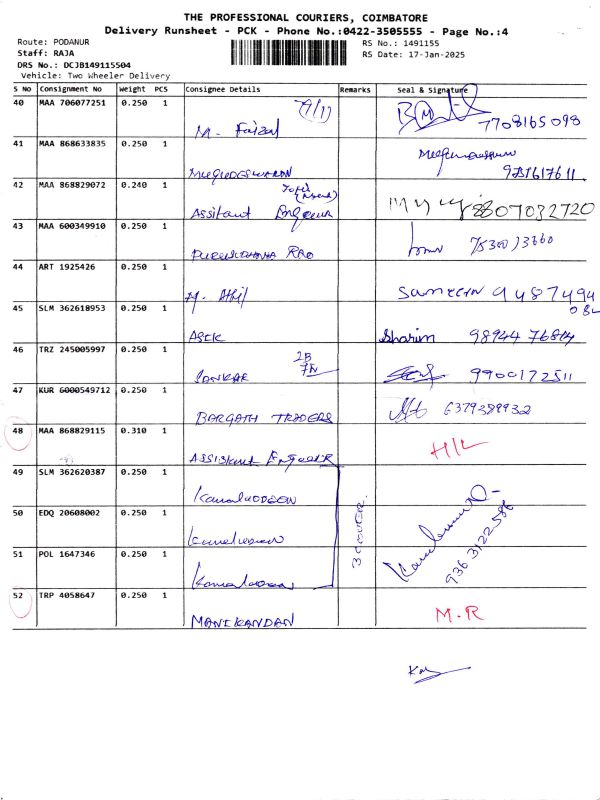 THE PROFESSIONAL COURIERS, COIMBATORE
Delivery Runsheet - PCK - Phone No.:0422-3505555 - Page No.:4
Route: PODANUR RS No.: 1491155
Staff: RAJA RS Date: 17-Jan-2025
DRS No.: DCJB149115504
Vehicle: Two Wheeler Delivery
S No Consignment No Weight PCS Consignee Details Remarks Seal & Signature
40 MAA 706077251 0.250 1 M. Faizal 7708165098
41 MAA 868633835 0.250 1 9281617611
42 MAA 868829072 0.240 1 Assitant 8807032720
43 MAA 600349910 0.250 1 RAO
44 ART 1925426 0.250 1 M. Athif 9487494
45 SLM 362618953 0.250 1 ASIK Sharim 98944 76814
46 TRZ 245005997 0.250 1 SANKAR 2B 9900172511
47 KUR 6000549712 0.250 1 BARGATH TRADERS 6379389932
48 MAA 868829115 0.310 1 ASSIStant EngineeR H/L
49 SLM 362620387 0.250 1 KamalUDDEEN
50 EDQ 20608002 0.250 1 3 COVER. 936 3122586
51 POL 1647346 0.250 1
52 TRP 4058647 0.250 1 MANIKANDAN M.R